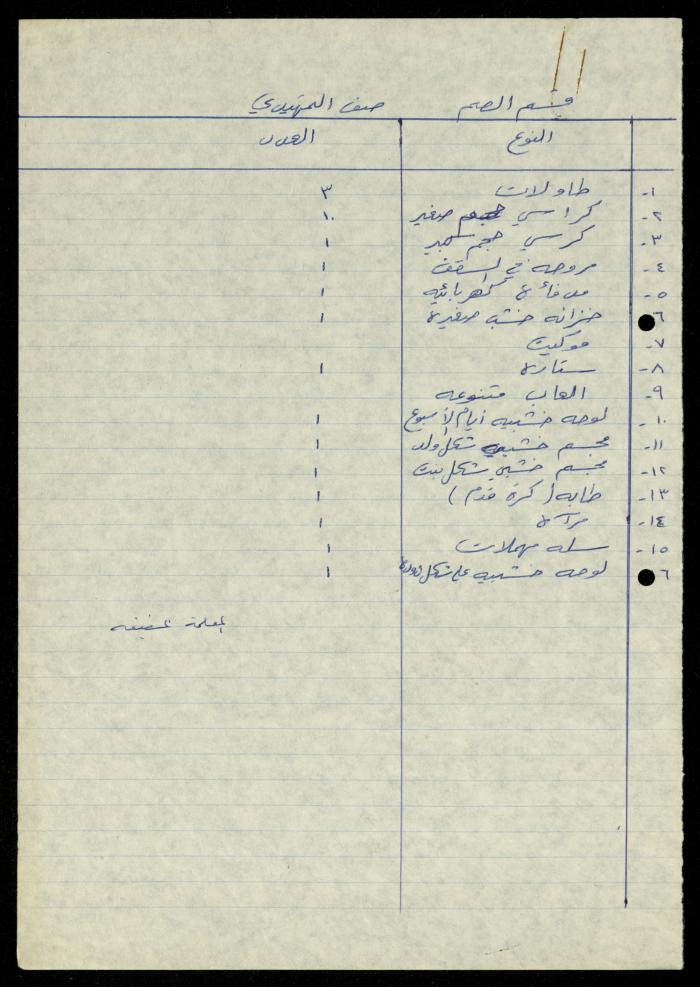 قسم الصم صف التمهيدي
النوع العدد
١- طاولات ٣
٢- كراسي حجم صغير ١٠
٣- كرسي حجم كبير ١
٤- مروحه في السقف ١
٥- مدفأة كهربائيه ١
٦ خزانه خشب صغيرة ١
٧- موكيت
٨- ستارة ١
٩- العاب متنوعه
١٠- لوحه خشبيه أيام الأسبوع ١
١١- مجسم خشبي شكل ولد ١
١٢- مجسم خشبي شكل بنت ١
١٣- طابه (كرة قدم) ١
١٤- مرآة ١
١٥- سله مهملات ١
٦ لوحه خشبيه على شكل ١
المعلمة